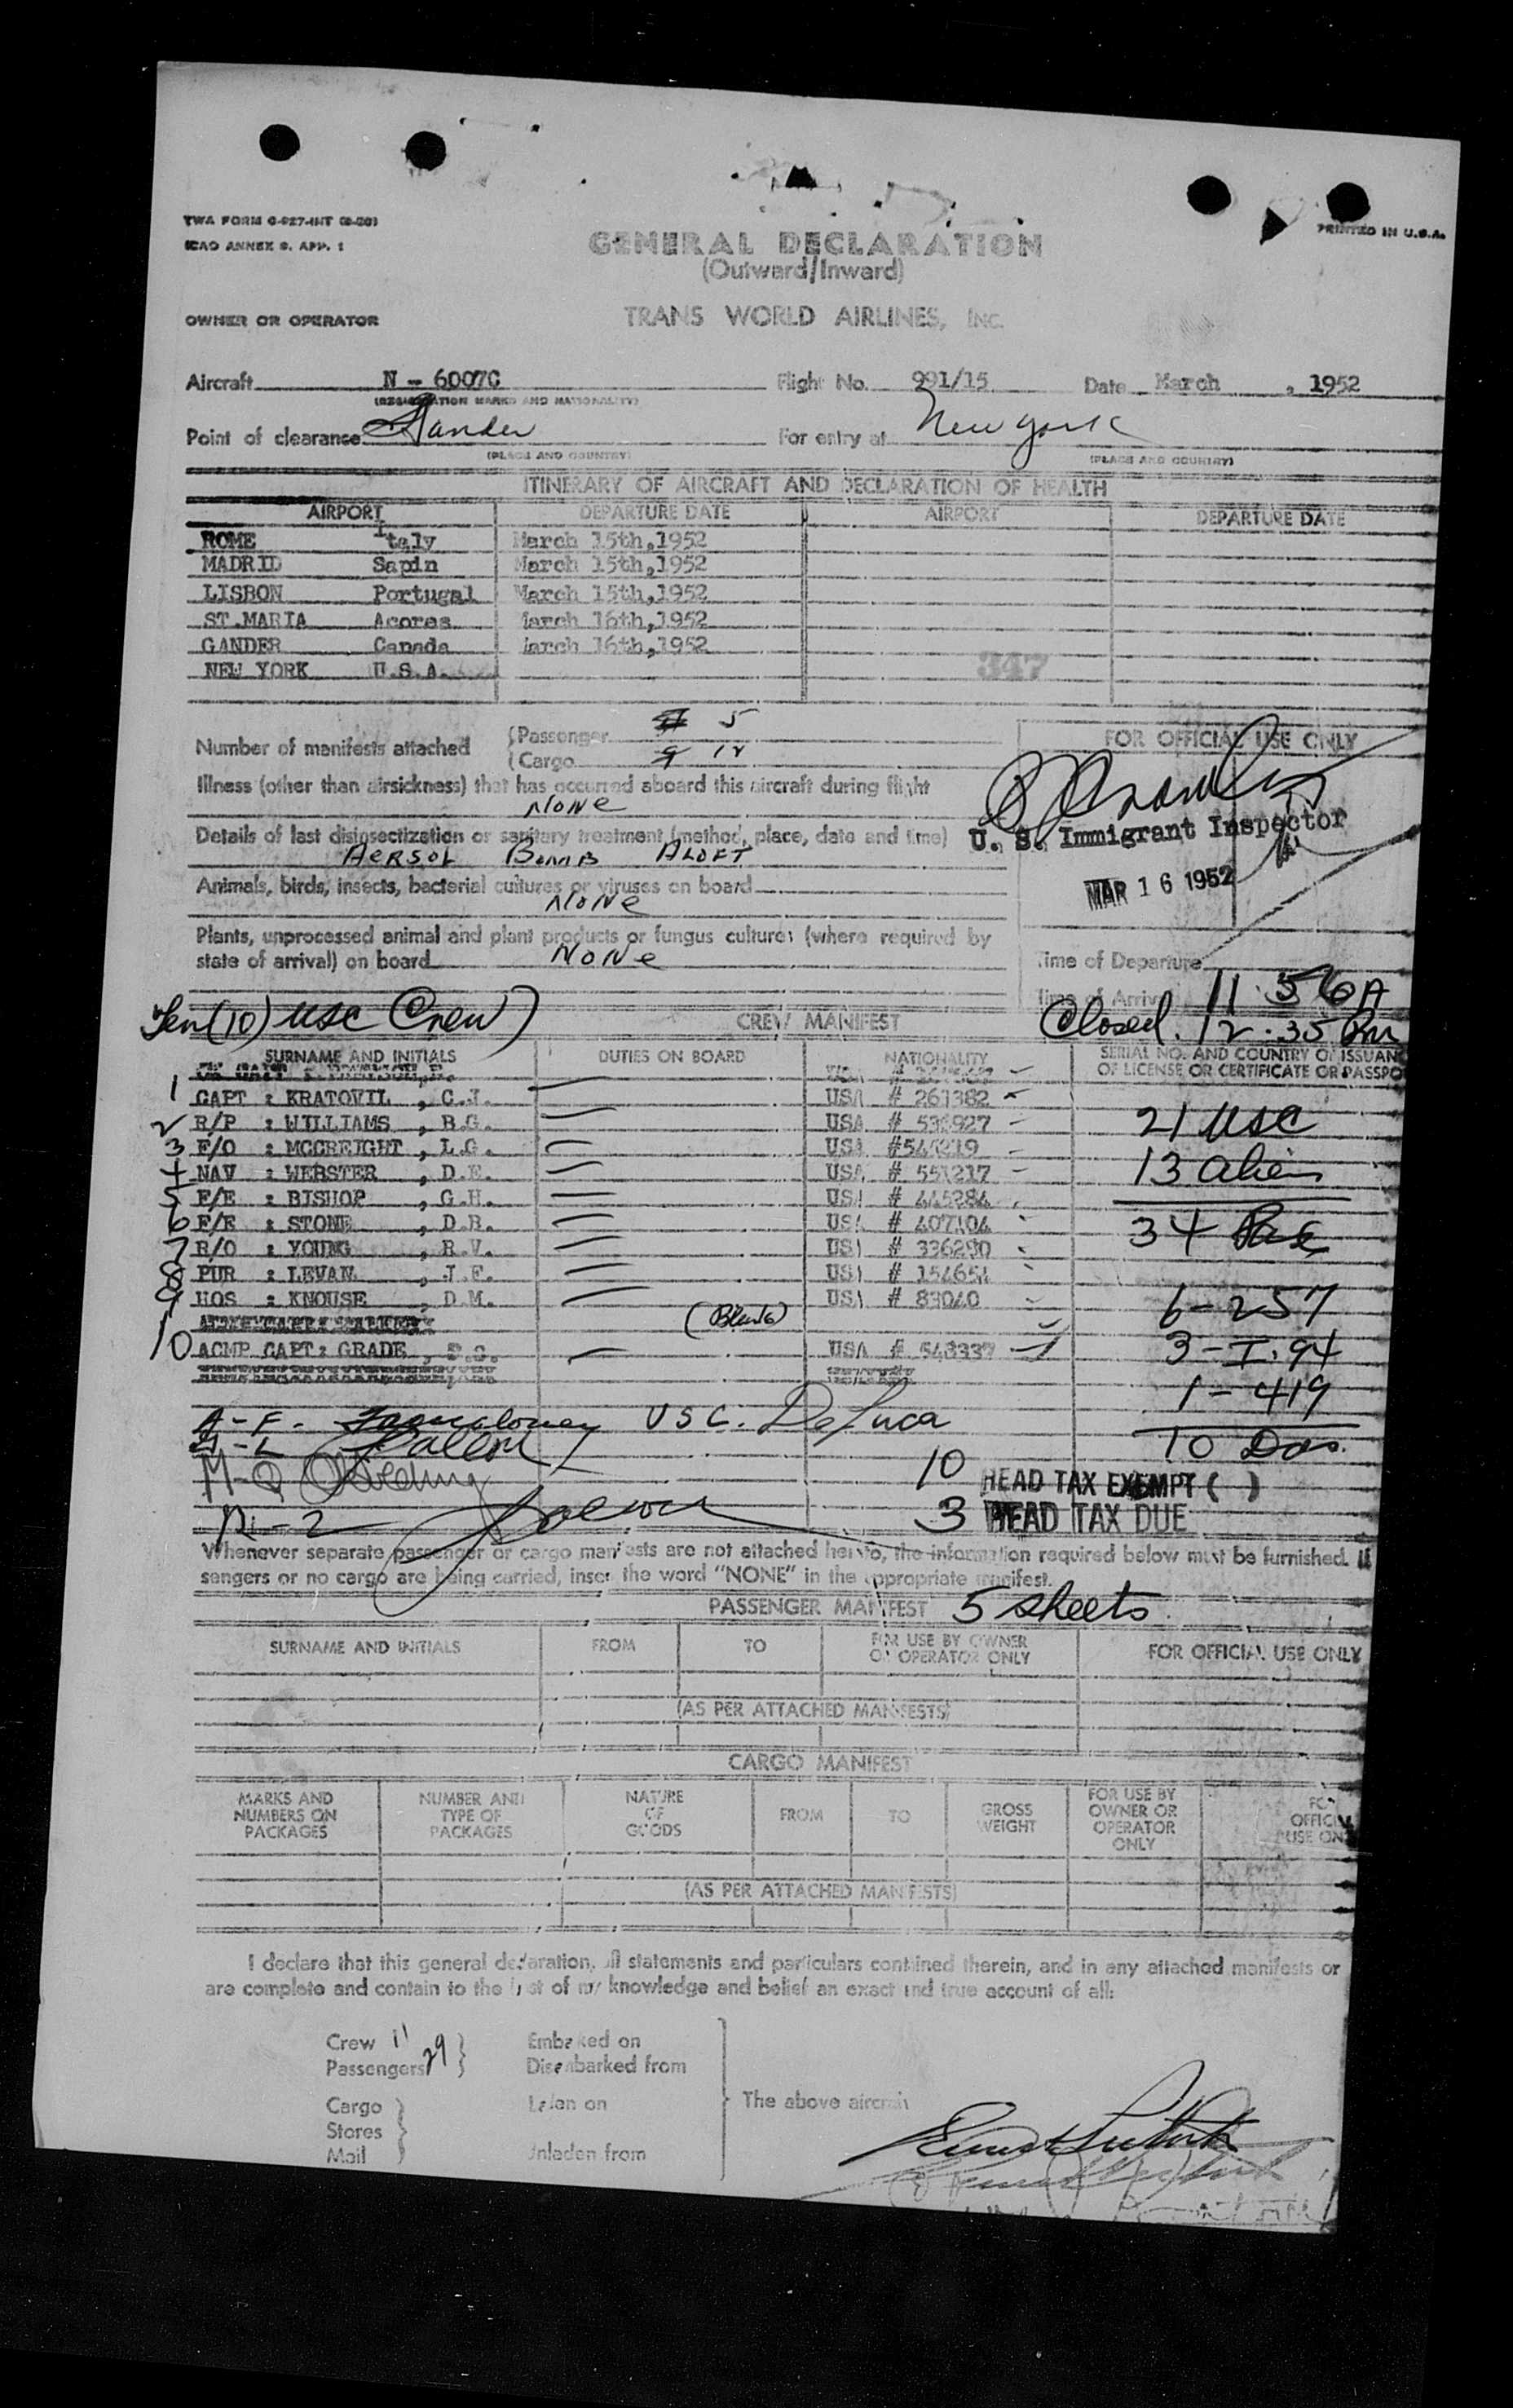 TWA FORM
ICAO ANNEX 9, APP. 1
PRINTED IN U.S.A.
GENERAL DECLARATION
(Outward/Inward)
OWNER OR OPERATOR TRANS WORLD AIRLINES, INC.
Aircraft N - 6007C Flight No. 991/15 Date March , 1952
(REGISTRATION MARKS AND NATIONALITY)
Point of clearance Gander For entry at New York
(PLACE AND COUNTRY) (PLACE AND COUNTRY)
ITINERARY OF AIRCRAFT AND DECLARATION OF HEALTH
AIRPORT DEPARTURE DATE AIRPORT DEPARTURE DATE
ROME Italy March 15th,1952
MADRID Sapin March 15th,1952
LISBON Portugal March 15th,1952
ST.MARIA Acores March 16th,1952
GANDER Canada March 16th,1952
NEW YORK U.S.A.
347
Number of manifests attached
Passenger 5
Cargo 12
FOR OFFICIAL USE ONLY
Illness (other than airsickness) that has occurred aboard this aircraft during flight
NONE
Details of last disinsectization or sanitary treatment (method, place, date and time)
AERSOL BOMB ALOFT
U. S. Immigrant Inspector
MAR 16 1952
Animals, birds, insects, bacterial cultures or viruses on board
NONE
Plants, unprocessed animal and plant products or fungus cultures (where required by
state of arrival) on board NONE
Time of Departure
Time of Arrival 11:56A
Ten (10) USC Crew) CREW MANIFEST Closed. 12:35 Pm
SURNAME AND INITIALS DUTIES ON BOARD NATIONALITY SERIAL NO. AND COUNTRY OF ISSUANC
OF LICENSE OR CERTIFICATE OR PASSPO
1 CAPT : KRATOVIL , C.J. USA # 261382
2 R/P : WILLIAMS , B.G. USA
3 F/O : MCCREIGHT , L.G. USA
4 NAV : WEBSTER , D.E. USA # 551217
5 F/E : BISHOP , G.H. USA # 445284
6 F/E : STONE , D.R. USA # 407404
7 R/O : YOUNG , R.V. USA # 336290
8 PUR : LEVAN , J.F. USA # 154654
9 HOS : KNOUSE , D.M. USA # 83040
10 ACMP CAPT: GRADE , USA # 548337
21 USC
13 alien
34 Pass
6 - 257
3 - I. 94
1 - 419
10 Dos.
A - F - USC. DeLuca
10 HEAD TAX EXEMPT ( )
3 HEAD TAX DUE
Whenever separate passenger or cargo manifests are not attached hereto, the information required below must be furnished. If
sengers or no cargo are being carried, insert the word "NONE" in the appropriate manifest.
PASSENGER MANIFEST 5 sheets
SURNAME AND INITIALS FROM TO FOR USE BY OWNER OR OPERATOR ONLY FOR OFFICIAL USE ONLY
(AS PER ATTACHED MANIFESTS)
CARGO MANIFEST
MARKS AND NUMBERS ON PACKAGES NUMBER AND TYPE OF PACKAGES NATURE OF GOODS FROM TO GROSS WEIGHT FOR USE BY OWNER OR OPERATOR ONLY FOR OFFICIAL USE ONLY
(AS PER ATTACHED MANIFESTS)
I declare that this general declaration, all statements and particulars contained therein, and in any attached manifests or
are complete and contain to the best of my knowledge and belief an exact and true account of all:
Crew 11 Embarked on
Passengers 29 Disembarked from
Cargo Laden on The above aircraft
Stores
Mail Unladen from